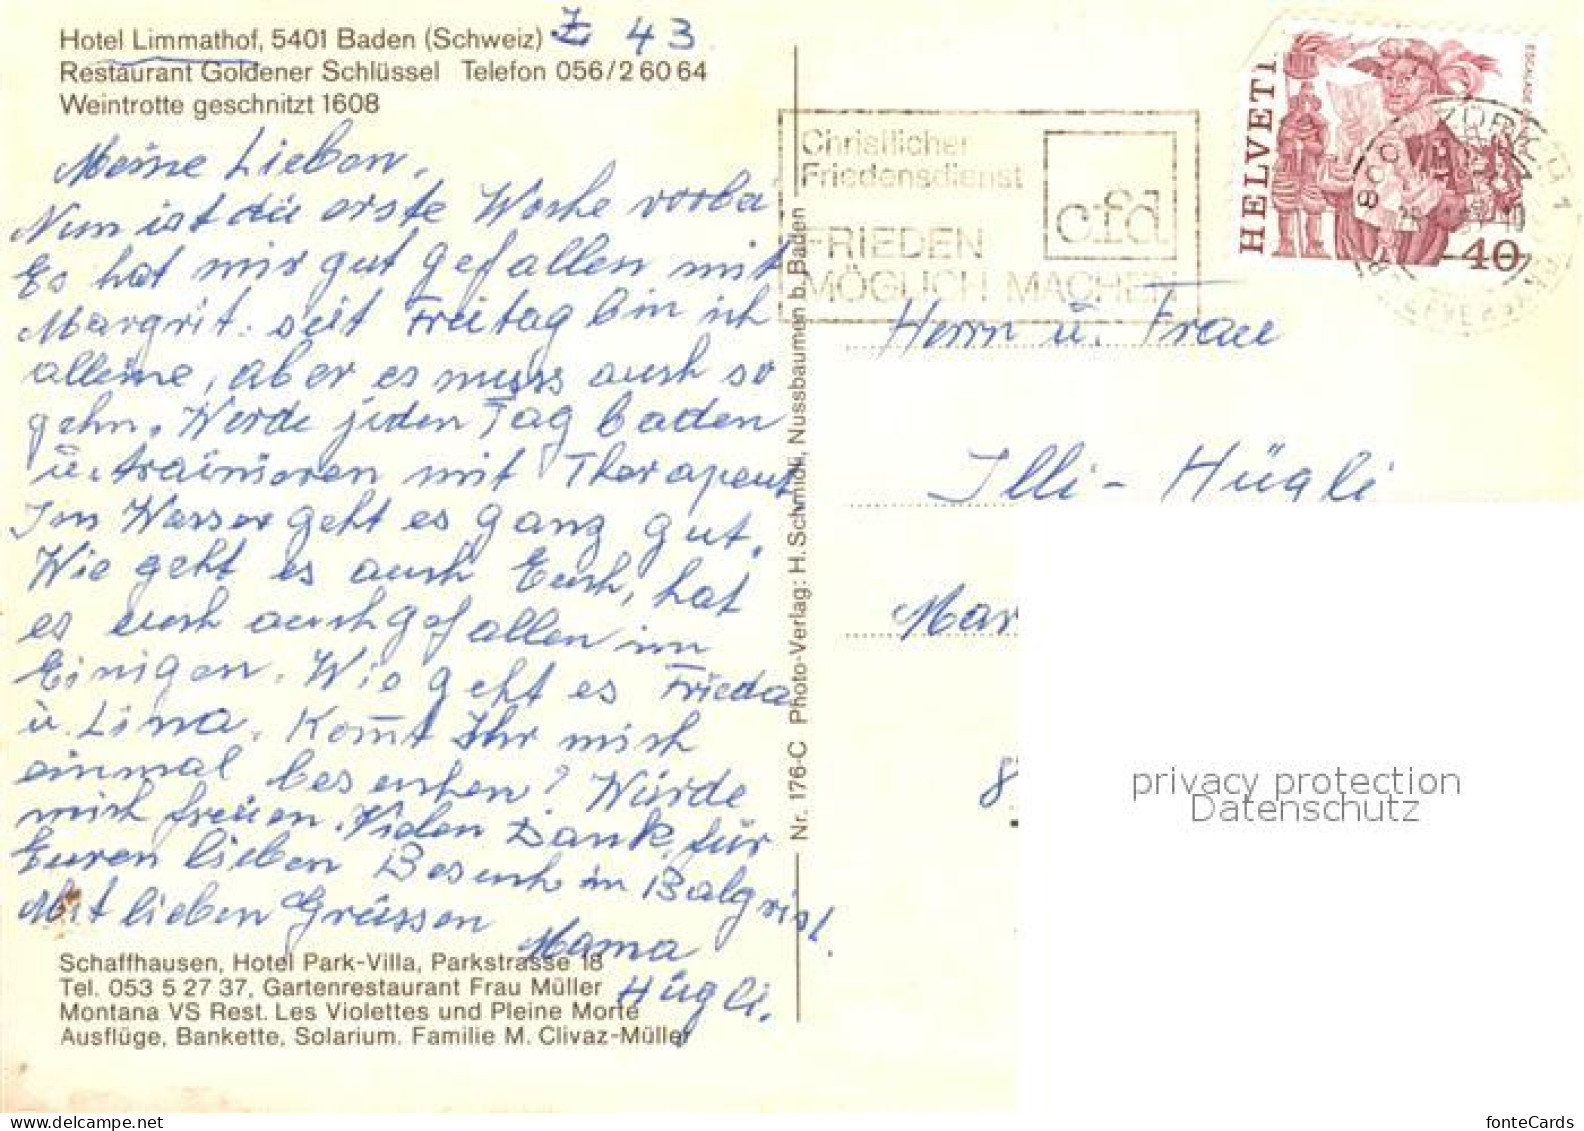 Hotel Limmathof, 5401 Baden (Schweiz) Z 43
Restaurant Goldener Schlüssel Telefon 056/2 60 64
Weintrotte geschnitzt 1608
Meine Lieben,
Nun ist die erste Woche vorbei
Es hat mir gut gefallen mit
Margrit. seit Freitag bin ich
alleine, aber es muss auch so
gehn. Werde jeden Tag baden
u. trainieren mit Therapeut
Im Wasser geht es ganz gut.
Wie geht es auch Euch, hat
es euch auch gefallen im
Einigen. Wie geht es Frieda
u. Lina. Kom̅t Ihr mich
einmal besuchen? Würde
mich freuen. Vielen Dank für
Euren lieben Besuch im Balgrist.
Mit lieben Grüssen
Mama
Hügli.
Schaffhausen, Hotel Park-Villa, Parkstrasse 18
Tel. 053 5 27 37, Gartenrestaurant Frau Müller
Montana VS Rest. Les Violettes und Pleine Morte
Ausflüge, Bankette, Solarium. Familie M. Clivaz-Müller
Nr. 176-C Photo-Verlag: H. Schmidli, Nussbaumen b. Baden
Christlicher
Friedensdienst
cfd
FRIEDEN
MÖGLICH MACHEN
HELVETI
ESCALADE
40
8000 ZÜRICH 1
Herrn u. Frau
Illi-Hügli
Mar
8
privacy protection
Datenschutz
fonteCards